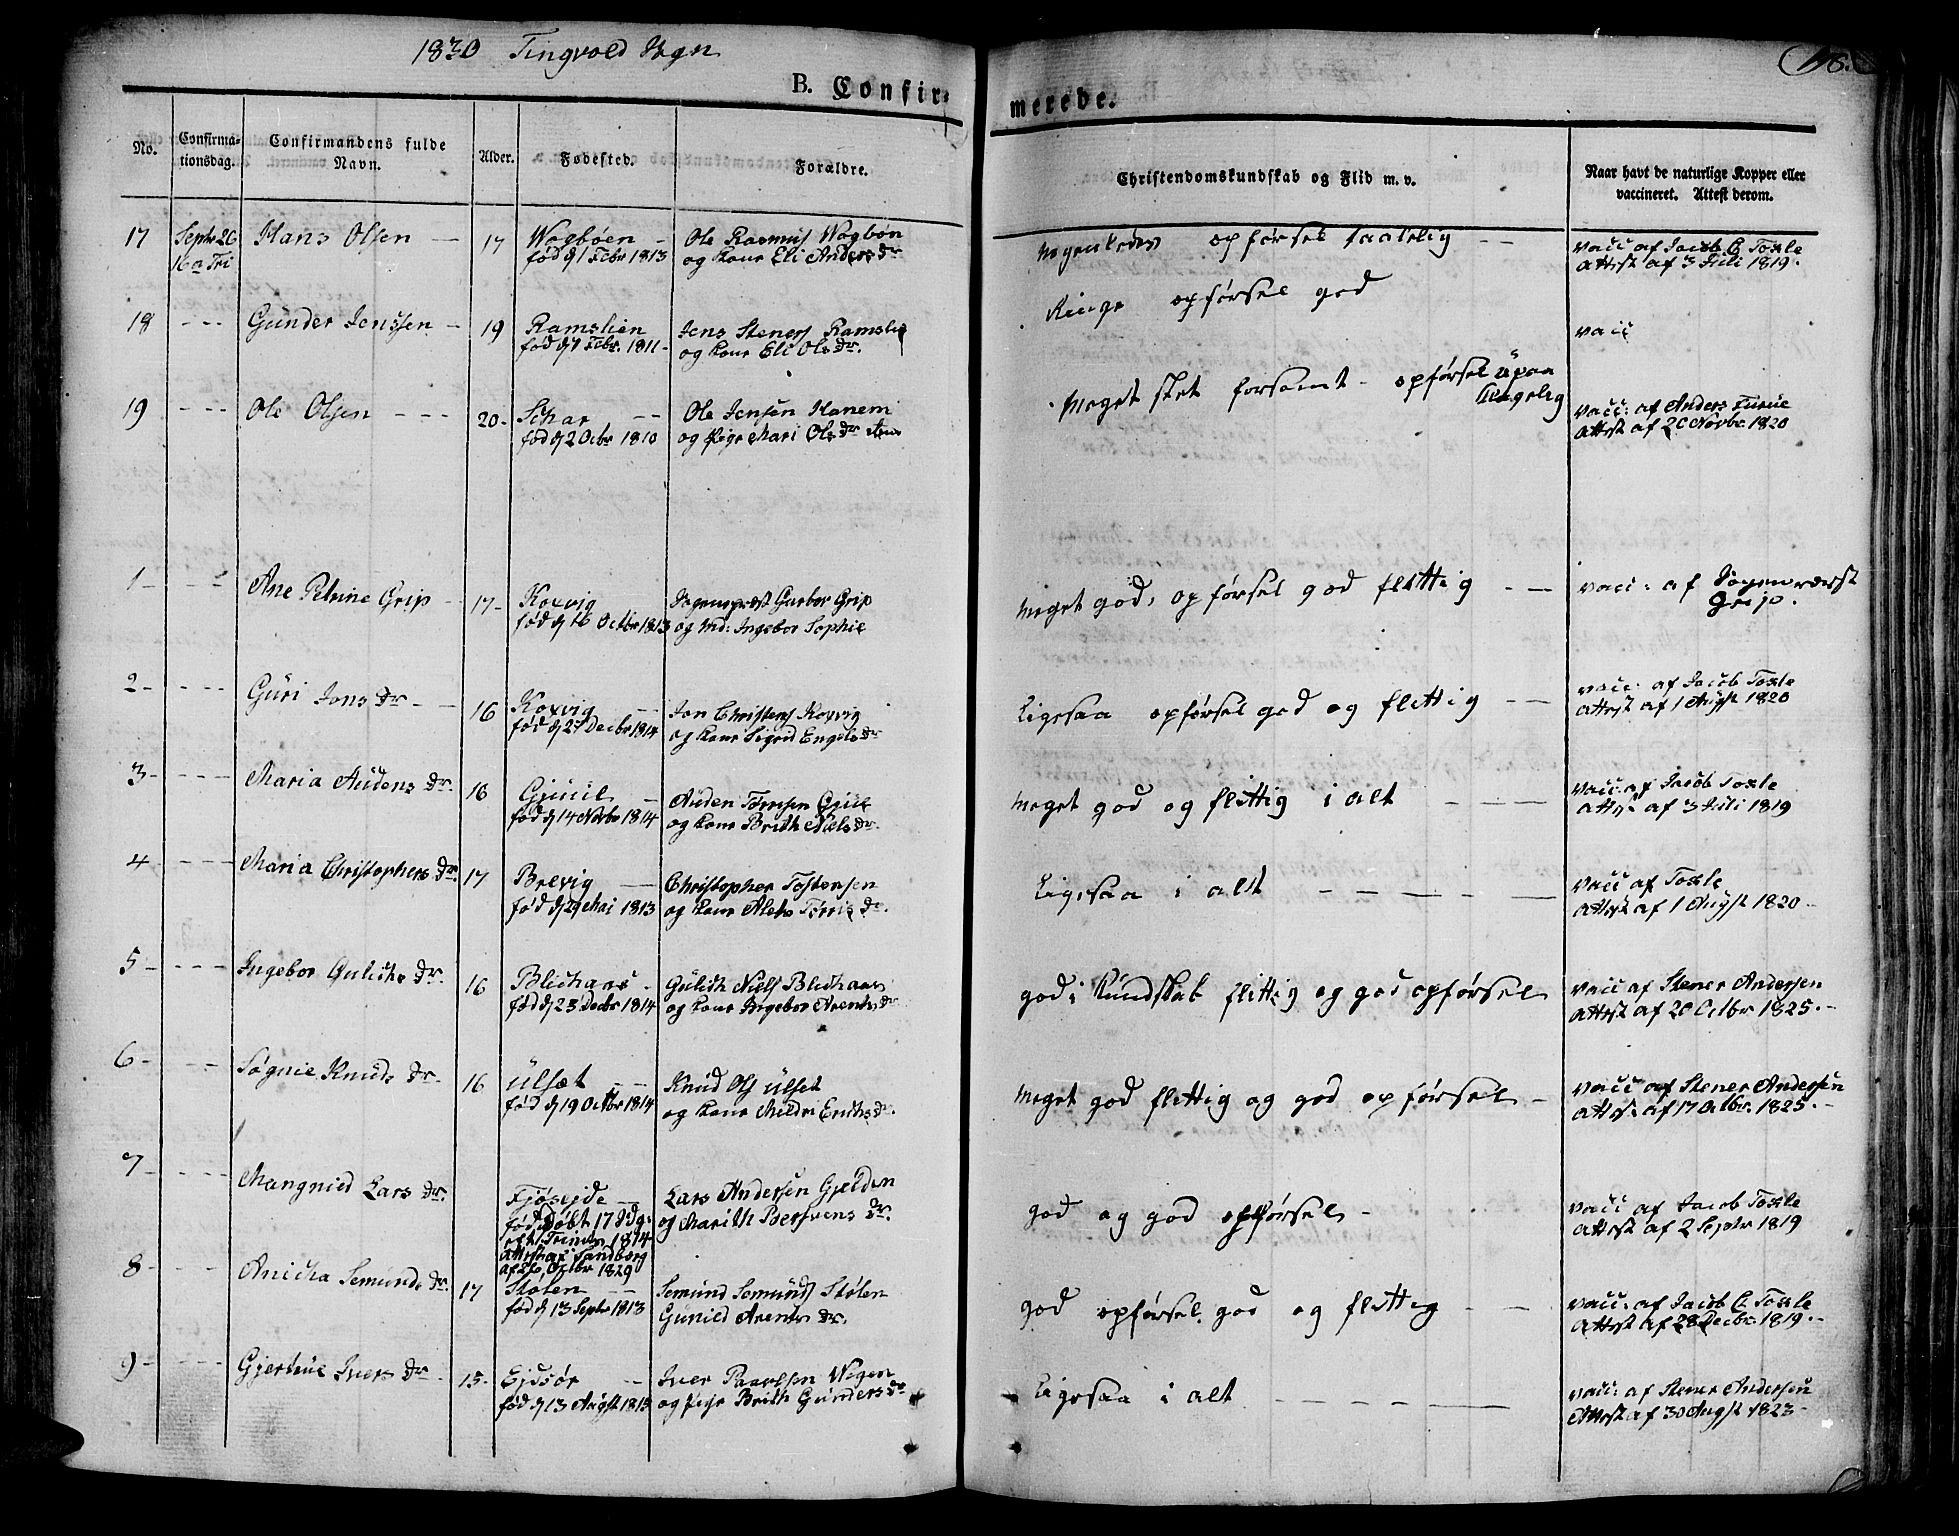 1830 Tingvold Sogn
B. Confirmerede.
No. Confirmationsdag. Confirmandens fulde Navn. Alder. Fødested. Forældre. Christendomskundskab og Flid m. v. Naar havt de naturlige Kopper eller vaccineret. Attest derom.
17 Septr 26 Hans Olsen — 17 Wogbøen — Ole Rasmus Wogbøn opførsel taalelig — — vacc af Jacob C Toxle
16 a Tri fød d 1 Febr 1813 og kone Eli Anders Dr attest af 3 Juli 1819.
18 - - - Gunder Jenssen — 19 Ramslien Jens Stenerss Ramslie Ringe opførsel god vacc
fød d 7 Febr. 1811 og kone Eli Ols Dr.
19 - - - Ole Olsen - - - 20 - Schar — Ole Jensen Hanem Meget slet forsømt - opførsel upaa klagelig vacc: af Anders Furue
fød d 2 Octbr 1810 og Pige Mari Ols Dr attest af 20 Novbr. 1820
1 - - - Ane Petrine Grip - 17 - Koxvig Sognepræst Garbor Grip Meget god, opførsel god flittig — — vacc: af Sognepræst Grip.
fød d 16 Octbr 1813 og Md: Ingebor Sophie
2 - - - - Guri Jons Dr - - 16 Koxvig — Jon Christens Koxvig Ligesaa opførsel god og flittig — — vacc: af Jacob Toxle
fød d 27 Decbr 1814 og kone Sigrid Engels Dr attest af 1 Augst 1820
3 - - - - Maria Audens Dr. 16 Gjuul — Auden Tørresen Gjul Meget god og flittig i alt — — — vacc: af Jacob Toxle
fød d 14 Novbr 1814 og kone Brith Niels Dr. attst af 3 Juli 1819
4 - - - - Maria Christophers Dr. 17 Brevig — Christopher Tostensen Ligesaa i alt — — — — — vacc af Toxle
fød d 29 Mai 1813 og kone Aleth Tørris Dr. attst af 1 Augst 1820 -
5 - - - - Ingebor Gulichs Dr. 16 Blichars - Gulich Niels Blichaas god i Kundskab flittig og god opførsel vacc af Stener Andersen
fød d 23 Decbr 1814 og kone Ingebor Arents Dr. attest af 20 Octbr 1825. -
6 - - - - Søgnie Knuds Dr - 16 Ulsæt — Knud Ols Ulset Meget god flittig og god opførsel — vacc af Stener Andersen
fød d 19 Octbr 1814 og kone Mildri Erichs Dr. attst af 17 Octbr. 1825. -
7 - - - - Mangnild Lars Dr. Fjøseide — Lars Andersen Gjelden god og god opførsel - vacc af Jacob Toxle
fød Døbt 17 Sdg. og Marith Bersvens Dr. attest af 2 Septr 1819
eft. Trinit. 1814
attest af Sandborg
Octbr 1829
8 - - - - Anicha Semunds Dr. 17 Stølen — Semund Semunds Stølen god opførsel god og flittig - — vacc: af Jacob C: Toxle
fød d 13 Septr 1813 Gunild Arents Dr. attst af 28 Decbr. 1819. -
9 - - - - Gjertrue Ivers Dr - 15 - Ejdsør — Iver Paavelsen Wogen Ligesaa i alt — — — — — vacc: af Stener Andersen
fød d 13 Augst 1815 og Pige Brith Gunders Dr Attest af 30 Augst 1823 -